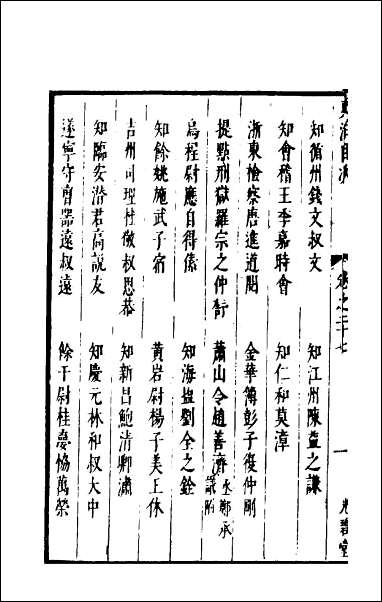 知循州錢文叔文
知江州陳益之謙
知會稽王季嘉時會
知仁和莫漳
浙東檢察唐進道閱
金華簿彭子復仲剛
提點刑獄羅宗之仲舒
蕭山令趙善濟 丞鄭承議
烏程尉應自得傃
知海鹽劉全之銓
知餘姚施武子宿
黃岩尉楊子美王休
吉州司理杜徽叔思恭
知新昌鮑清卿潚
知臨安潛君高說友
知慶元林和叔大中
遂寧守曹器遠叔遠
餘干尉桂夢協萬榮
卷之二十七
一